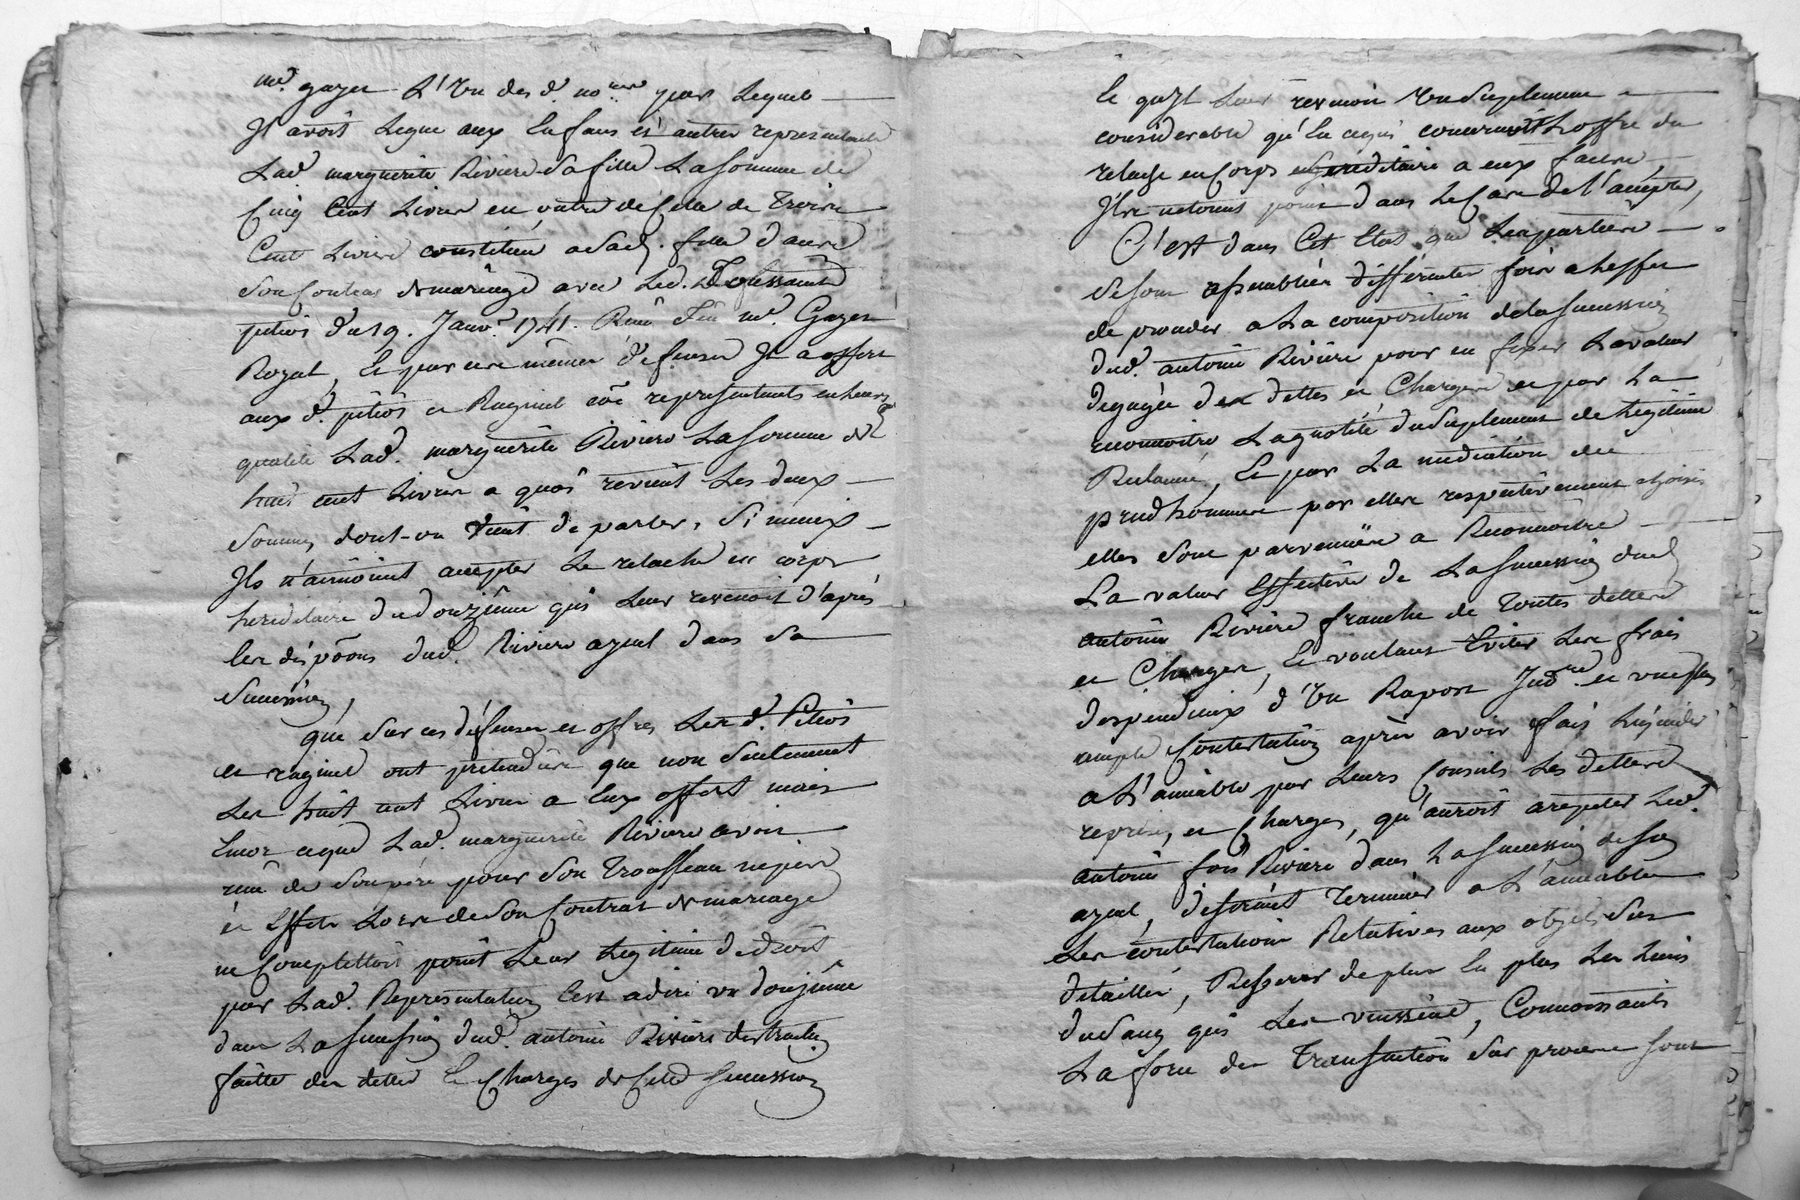 me. gayet L'un des d. no.res par Lequel
Jl avoit Legué aux Enfans et autres representants
Lad. marguerite Riviere sa fille La somme de
Cinq Cent Livres en outre de Celle de Treize
Cent Livres constituée a sad. fille dans
son Contrat de mariage avec Led. Toussaint
pitiot du 19. Janvr. 1741. Reçu feu me. Gayet
Royal, Et par ces mêmes defenses Jl a offert
aux d. pitiot et Raginel côe representants en leurs
qualité Lad. marguerite Riviere La somme de
huit cent Livres a quoi revient Les deux
sommes dont-on vient de parler, si mieux
Ils n'aimoint accepter Le relache en corps
hereditaire du douzième qui Leur revenoit d'après
les dispôons dud. Riviere ayeul dans sa
succession,
que sur ces défenses et offres Les d. Pitiot
et raginel ont prétendu que non seulement
Les huit cent Livres a Eux offert mais
Encor ce que Lad. marguerite Riviere avoit
reçu de son père pour son Trousseau nipes
et Effets Lors de son Contrat de mariage
ne Complettoit point Leur Legitime de droit
par Lad. Representation C'est a dire un douzième
dans La succession dud. antoine Riviere distraction
faitte des dettes Et Charges de Cette succession
Et qu'Jl Leur revenoit un suplement
considerable qu'En ce qui concernoit L'offre du
relache en Corps hereditaire a eux faitte,
Jls ne etoint point dans Le Cas de l'accepter,
C'est dans Cet Etat que Les parties
se sont assemblées différentes fois a L'effet
de proceder a La composition de La succession
dud. antoine Riviere pour en fixer La valeur
degagée des dettes et Charges et par La
reconnoitre La quotité du suplement de Legitime
Reclamé, Et par La médiation des
prudhommes par elles respectivement choisis
elles sont parvenües a Reconnoitre
La valeur Effective de La succession dud.
antoine Riviere franche de Toutes dettes
et Charges, Et voulant Eviter Les frais
dispendieux d'un Raport Jud.re et une plus
ample Contestation après avoir fait Liquider
a L'amiable par Leurs Conseils Les dettes
reprises, et Charges, qu'auroit a repeter Led.
antoine fois Riviere dans La succession de son
ayeul, desirant Terminer a L'amiable
Les contestations Relatives aux objets sus
detaillés, Resserrer de plus En plus Les Liens
du sang qui Les unissent, Connoissants
La force des Transactions sur procès sont